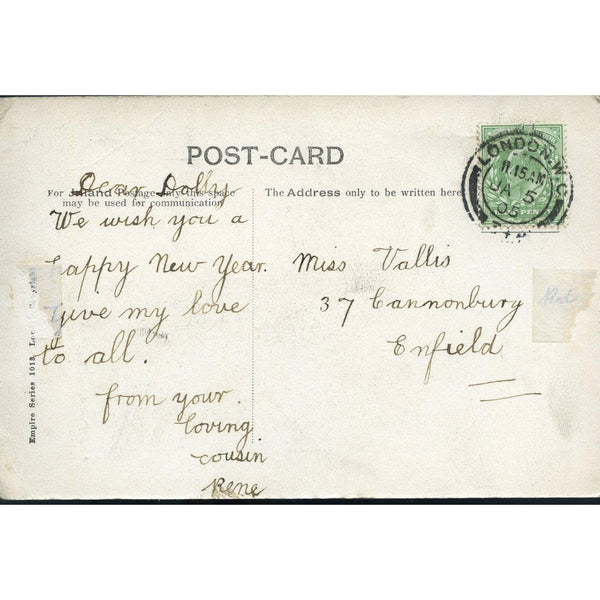 POST-CARD
For Inland Postage only this space
may be used for communication
The Address only to be written here
LONDON.W.C
11.15AM
JA 5
05
Dear Dolly
We wish you a
happy New Year.
Give my love
to all.
from your.
loving
cousin
Rene
Miss Vallis
37 Cannonbury
Enfield
Empire Series 1013,